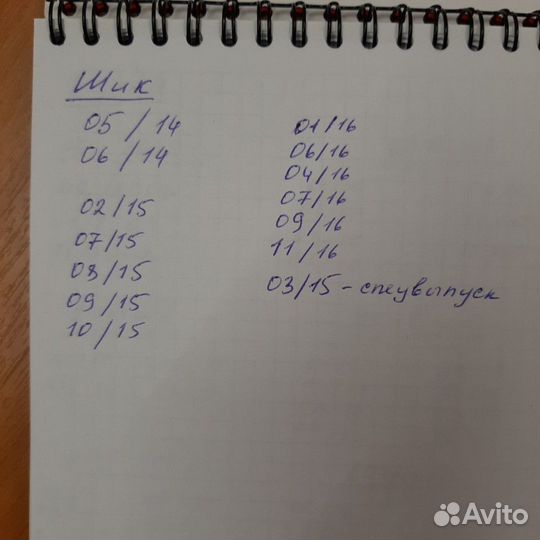 Шик
05/14
06/14
02/15
07/15
08/15
09/15
10/15
01/16
06/16
04/16
07/16
09/16
11/16
03/15 - спецвыпуск
Avito